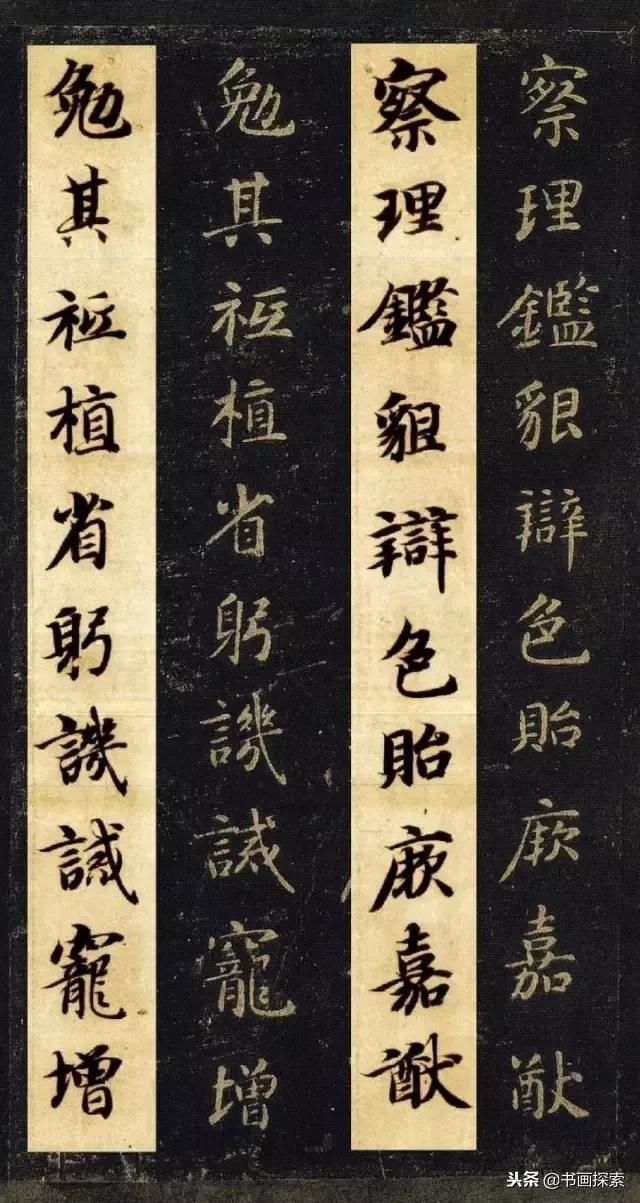 察理鑑貌辯色貽厥嘉猷
察理鑑貌辯色貽厥嘉猷
勉其祗植省躬譏誡寵增
勉其祗植省躬譏誡寵增
头条 @书画探索